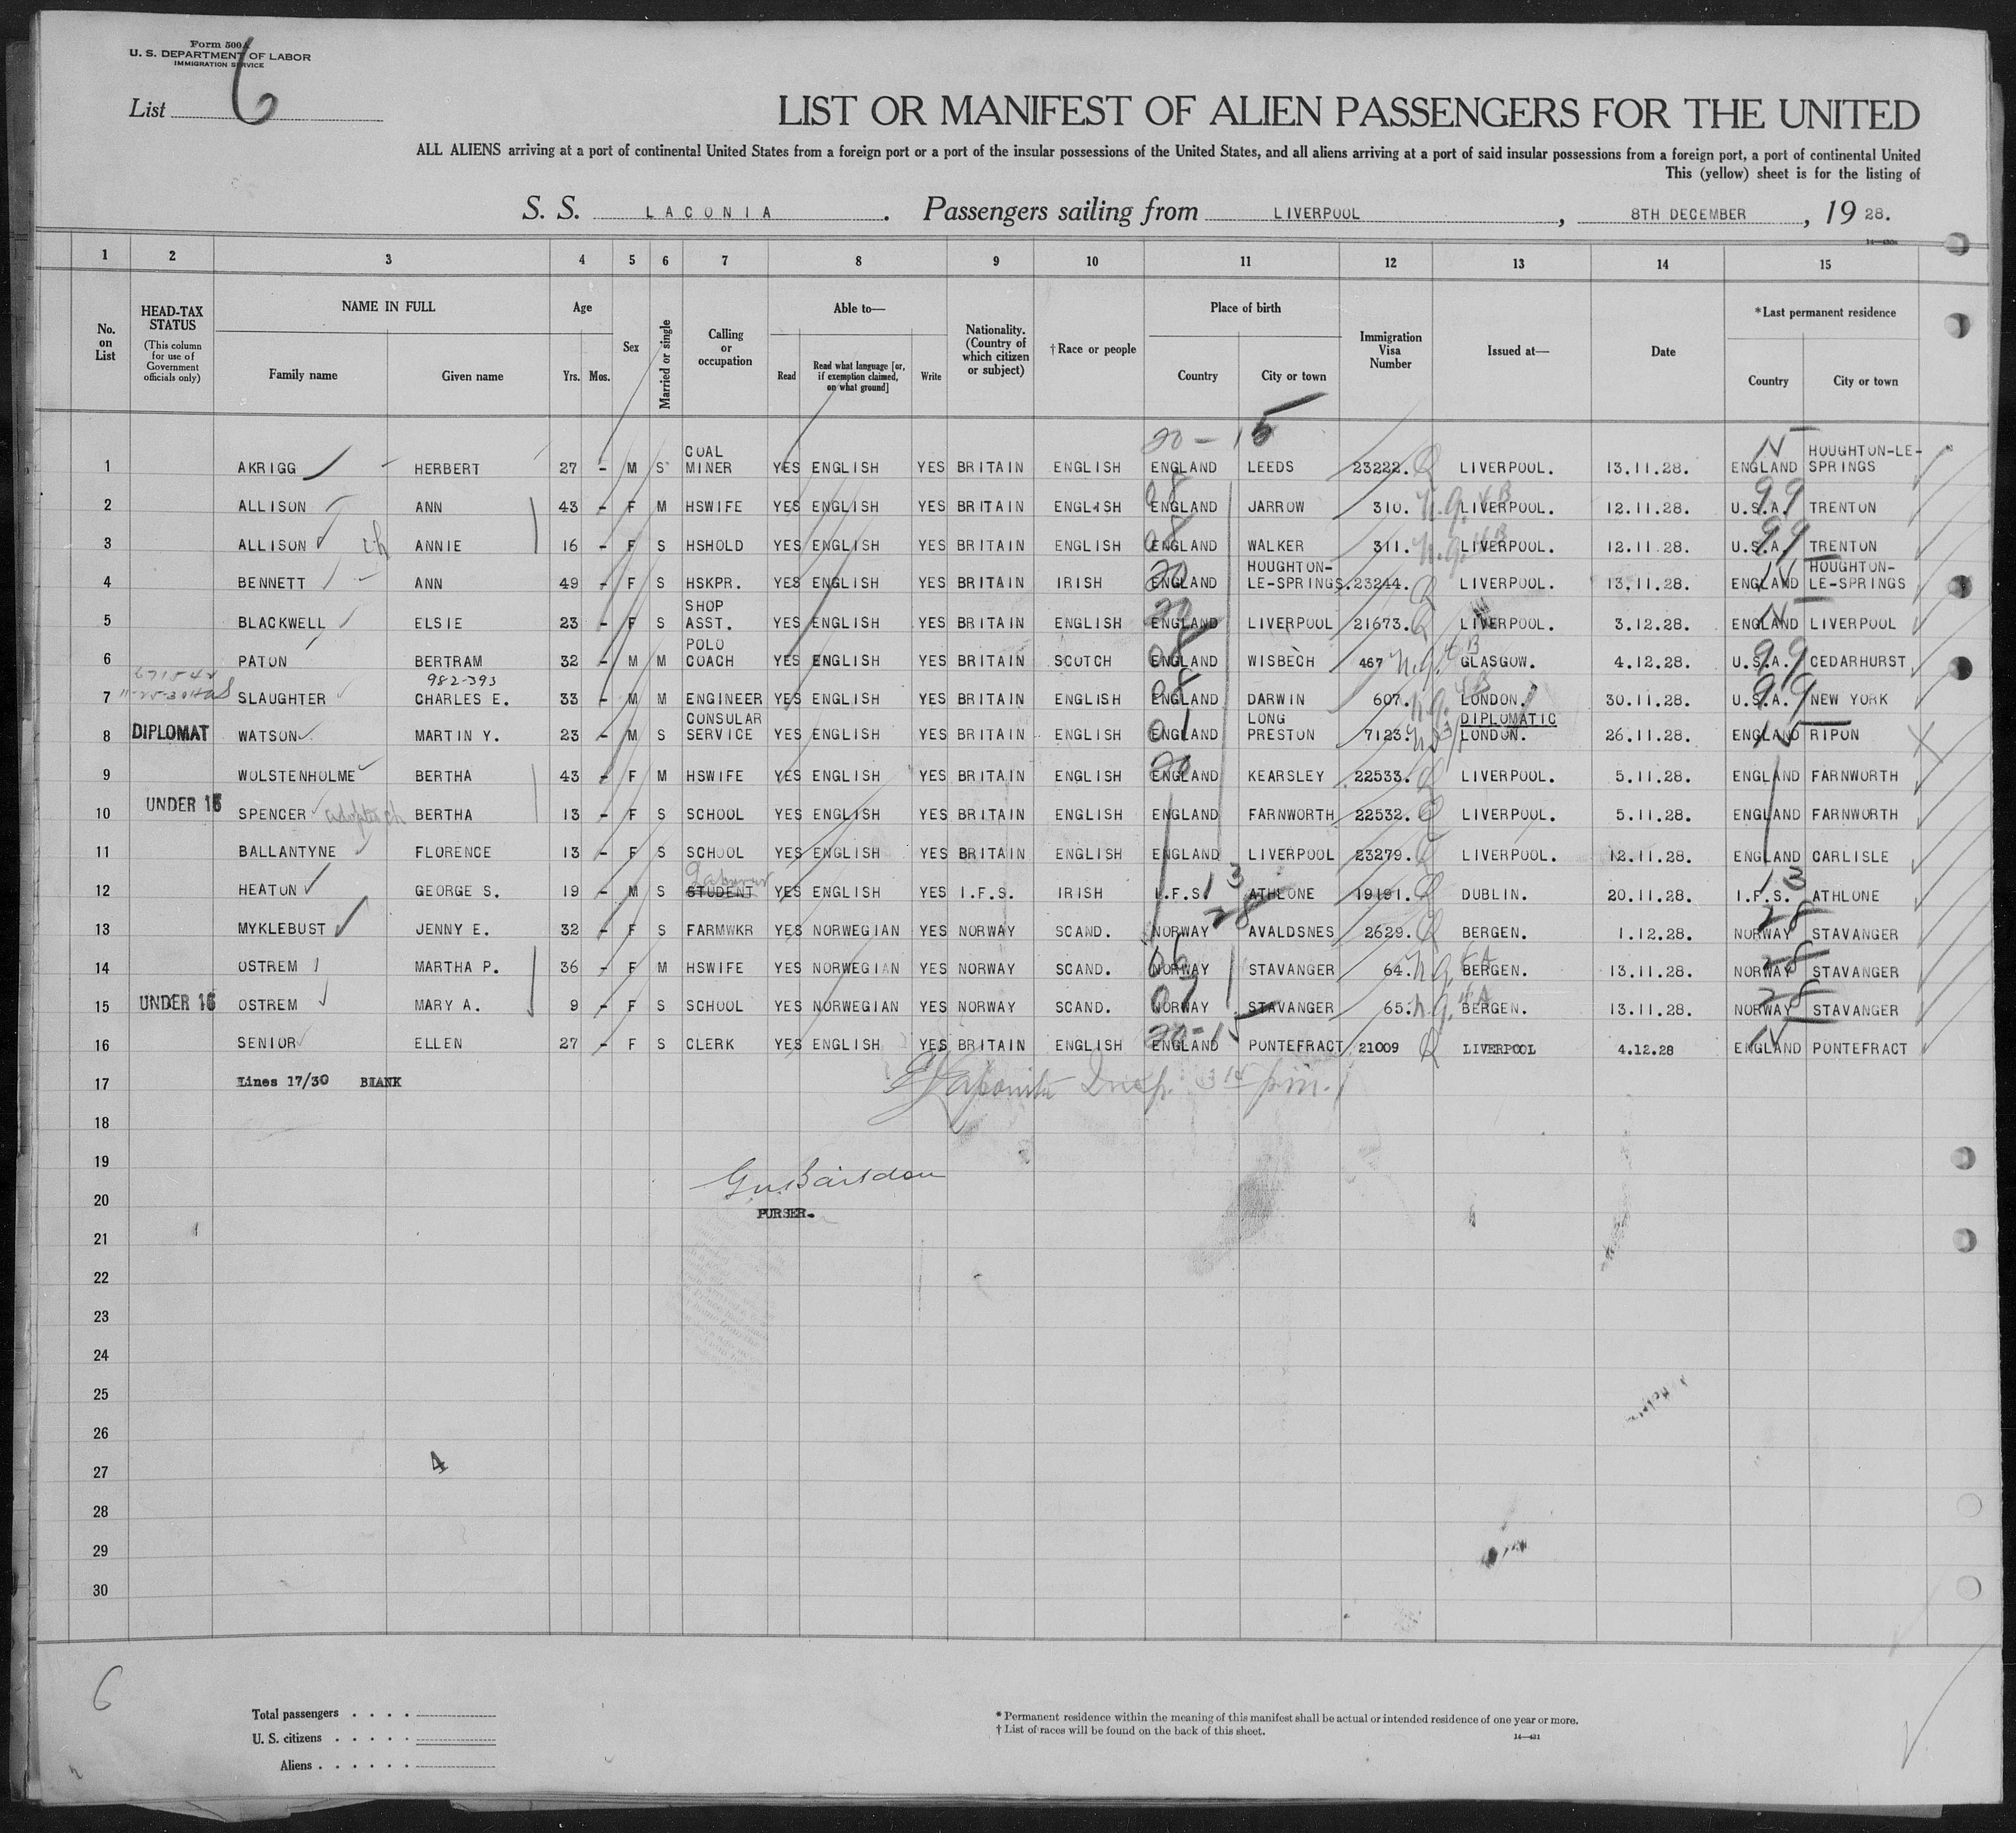 Form 500A
U. S. DEPARTMENT OF LABOR
IMMIGRATION SERVICE
List 6
LIST OR MANIFEST OF ALIEN PASSENGERS FOR THE UNITED
ALL ALIENS arriving at a port of continental United States from a foreign port or a port of the insular possessions of the United States, and all aliens arriving at a port of said insular possessions from a foreign port, a port of continental United
This (yellow) sheet is for the listing of
S. S. LACONIA. Passengers sailing from LIVERPOOL, 8TH DECEMBER, 19 28.
1 2 3 4 5 6 7 8 9 10 11 12 13 14 15
No. on List
HEAD-TAX STATUS (This column for use of Government officials only)
NAME IN FULL
Family name Given name
Age
Yrs. Mos.
Sex
Married or single
Calling or occupation
Able to—
Read Read what language [or, if exemption claimed, on what ground] Write
Nationality. (Country of which citizen or subject)
†Race or people
Place of birth
Country City or town
Immigration Visa Number
Issued at—
Date
*Last permanent residence
Country City or town
20 - 15
1 AKRIGG HERBERT 27 - M S COAL MINER YES ENGLISH YES BRITAIN ENGLISH ENGLAND LEEDS 23222. Q LIVERPOOL. 13.11.28. ENGLAND HOUGHTON-LE-SPRINGS
2 ALLISON ANN 43 - F M HSWIFE YES ENGLISH YES BRITAIN ENGLISH ENGLAND JARROW 310. n.q. 4B LIVERPOOL. 12.11.28. U.S.A. 99 TRENTON
3 ALLISON ANNIE 16 - F S HSHOLD YES ENGLISH YES BRITAIN ENGLISH ENGLAND WALKER 311. n.q. 4B LIVERPOOL. 12.11.28. U.S.A. 99 TRENTON
4 BENNETT ANN 49 - F S HSKPR. YES ENGLISH YES BRITAIN IRISH ENGLAND 20 HOUGHTON-LE-SPRINGS. 23244. Q LIVERPOOL. 13.11.28. ENGLAND HOUGHTON-LE-SPRINGS
5 BLACKWELL ELSIE 23 - F S SHOP ASST. YES ENGLISH YES BRITAIN ENGLISH ENGLAND 20 LIVERPOOL 21673. Q LIVERPOOL. 3.12.28. ENGLAND LIVERPOOL
6 PATON BERTRAM 32 - M M POLO COACH YES ENGLISH YES BRITAIN SCOTCH ENGLAND 08 WISBECH 467 n.q. 4B GLASGOW. 4.12.28. U.S.A. 99 CEDARHURST
982-393
7 SLAUGHTER CHARLES E. 33 - M M ENGINEER YES ENGLISH YES BRITAIN ENGLISH ENGLAND 08 DARWIN 607. n.q. 4B LONDON. 30.11.28. U.S.A. 99 NEW YORK
8 DIPLOMAT WATSON MARTIN Y. 23 - M S CONSULAR SERVICE YES ENGLISH YES BRITAIN ENGLISH ENGLAND 01 LONG PRESTON 7123. DIPLOMATIC LONDON. 26.11.28. ENGLAND RIPON
9 WOLSTENHOLME BERTHA 43 - F M HSWIFE YES ENGLISH YES BRITAIN ENGLISH ENGLAND 20 KEARSLEY 22533. Q LIVERPOOL. 5.11.28. ENGLAND FARNWORTH
10 UNDER 16 SPENCER BERTHA 13 - F S SCHOOL YES ENGLISH YES BRITAIN ENGLISH ENGLAND FARNWORTH 22532. Q LIVERPOOL. 5.11.28. ENGLAND FARNWORTH
11 BALLANTYNE FLORENCE 13 - F S SCHOOL YES ENGLISH YES BRITAIN ENGLISH ENGLAND LIVERPOOL 23279. Q LIVERPOOL. 12.11.28. ENGLAND CARLISLE
12 HEATON GEORGE S. 19 - M S STUDENT Laborer YES ENGLISH YES I.F.S. IRISH I.F.S. 13 ATHLONE 19191. Q DUBLIN. 20.11.28. I.F.S. 13 ATHLONE
13 MYKLEBUST JENNY E. 32 - F S FARMWKR YES NORWEGIAN YES NORWAY SCAND. NORWAY 28 AVALDSNES 2629. Q BERGEN. 1.12.28. NORWAY 28 STAVANGER
14 OSTREM MARTHA P. 36 - F M HSWIFE YES NORWEGIAN YES NORWAY SCAND. NORWAY 06 STAVANGER 64. n.q. 4A BERGEN. 13.11.28. NORWAY 28 STAVANGER
15 UNDER 16 OSTREM MARY A. 9 - F S SCHOOL YES NORWEGIAN YES NORWAY SCAND. NORWAY 07 STAVANGER 65. n.q. 4A BERGEN. 13.11.28. NORWAY 28 STAVANGER
16 SENIOR ELLEN 27 - F S CLERK YES ENGLISH YES BRITAIN ENGLISH ENGLAND 20-15 PONTEFRACT 21009 Q LIVERPOOL 4.12.28 ENGLAND PONTEFRACT
17 Lines 17/30 BLANK
Insp. 3 15 p.m.
18
19
20
PURSER.
21
22
23
24
25
26
27
4
28
29
30
6
Total passengers . . . .
U. S. citizens . . . . .
Aliens . . . . . .
* Permanent residence within the meaning of this manifest shall be actual or intended residence of one year or more.
† List of races will be found on the back of this sheet.
14—421